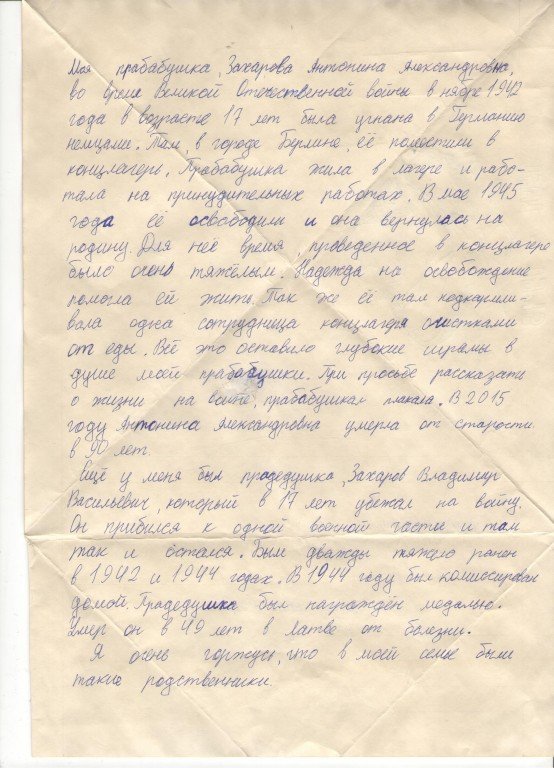 Моя прабабушка, Захарова Антонина Александровна,
во время Великой Отечественной войны в нябре 1942
года в возрасте 17 лет была угнана в Германию
немцами. Там, в городе Берлине, её поместили в
концлагерь. Прабабушка жила в лагере и рабо-
тала на принудительных работах. В мае 1945
года её освободили и она вернулась на
родину. Для неё время, проведенное в концлагере
было очень тяжёлым. Надежда на освобождение
помогла ей жить. Так же её там подкармли-
вала одна сотрудница концлагеря очистками
от еды. Всё это оставило глубокие шрамы в
душе моей прабабушки. При просьбе рассказать
о жизни на войне, прабабушка плакала. В 2015
году Антонина Александровна умерла от старости
в 90 лет.
Ещё у меня был прадедушка, Захаров Владимир
Васильевич, который в 17 лет убежал на войну.
Он прибился к одной военной части и там
так и остался. Был дважды тяжело ранен
в 1942 и 1944 годах. В 1944 году был комиссирован
домой. Прадедушка был награждён медалью.
Умер он в 49 лет в Латве от болезни.
Я очень горжусь, что в моей семье были
такие родственники.